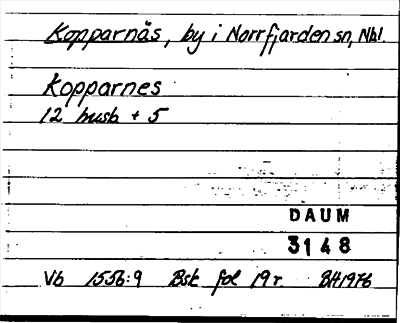 Kopparnäs, by i Norrfjärden sn, Nbl.
Kopparnes
12 husb. + 5
DAUM
3148
Vb 1556:9 Bsk fol 19 r. BH1976